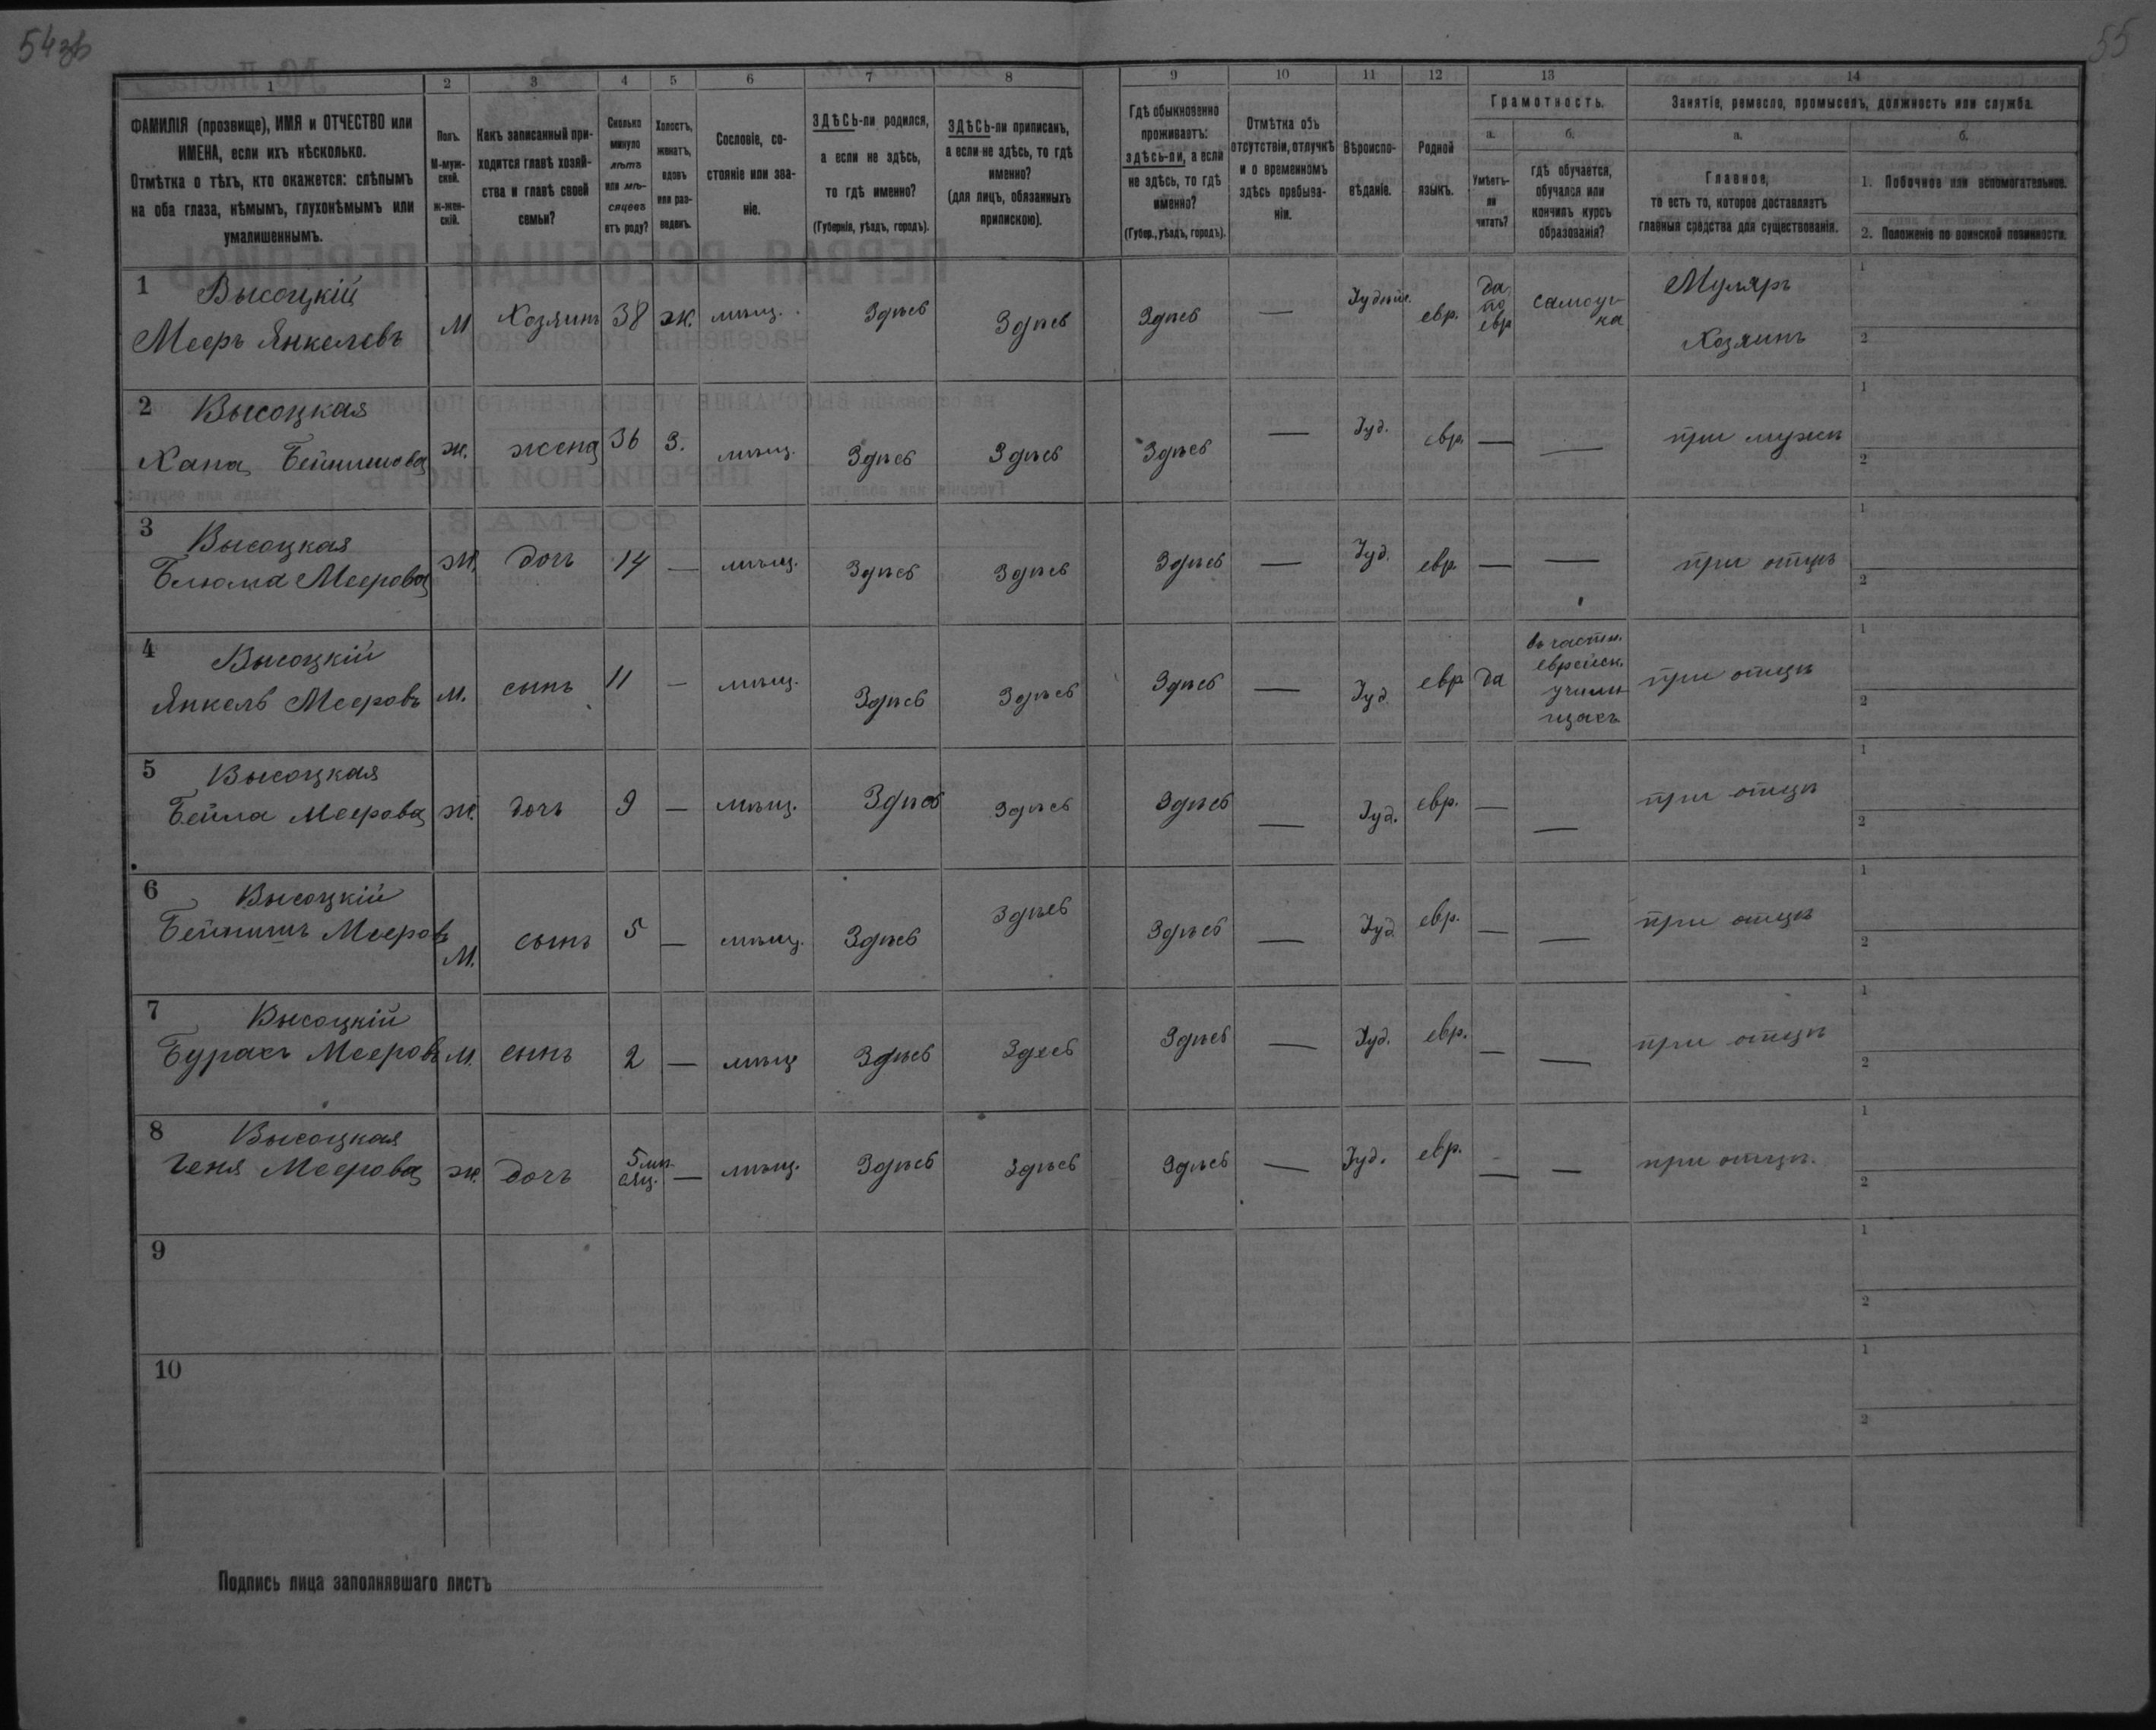 54об
55
1 2 3 4 5 6 7 8 9 10 11 12 13 14
ФАМИЛІЯ (прозвище), ИМЯ и ОТЧЕСТВО или
ИМЕНА, если ихъ нѣсколько.
Отмѣтка о тѣхъ, кто окажется: слѣпымъ
на оба глаза, нѣмымъ, глухонѣмымъ или
умалишеннымъ.
Полъ.
М-муж-
ской.
ж-жен-
скій.
Какъ записанный при-
ходится главѣ хозяй-
ства и главѣ своей
семьи?
Сколько
минуло
лѣтъ
или мѣ-
сяцевъ
отъ роду?
Холостъ,
женатъ,
вдовъ
или раз-
веденъ.
Сословіе, со-
стояніе или зва-
ніе.
ЗДѢСЬ-ли родился,
а если не здѣсь,
то гдѣ именно?
(Губернія, уѣздъ, городъ).
ЗДѢСЬ-ли приписанъ,
а если не здѣсь, то гдѣ
именно?
(для лицъ, обязанныхъ
припискою).
Гдѣ обыкновенно
проживаетъ:
здѣсь-ли, а если
не здѣсь, то гдѣ
именно?
(Губер., уѣздъ, городъ).
Отмѣтка объ
отсутствіи, отлучкѣ
и о временномъ
здѣсь пребыва-
ніи.
Вѣроиспо-
вѣданіе.
Родной
языкъ.
Грамотность.
а.
Умѣетъ-
ли
читать?
б.
гдѣ обучается,
обучался или
кончилъ курсъ
образованія?
Занятіе, ремесло, промыселъ, должность или служба.
а.
Главное,
то есть то, которое доставляетъ
главныя средства для существованія.
б.
1. Побочное или вспомогательное.
2. Положеніе по воинской повинности.
1 Высоцкій
Мееръ Янкелевъ М Хозяинъ 38 ж. мѣщ. Здѣсь Здѣсь Здѣсь — Іудейс. евр. да по евр самоуч-ка Муляръ Хозяинъ 1 2
2 Высоцкая
Хана Бейнишова ж. жена 36 З. мѣщ. Здѣсь Здѣсь Здѣсь — Іуд. евр. — — при мужѣ 1 2
3 Высоцкая
Блюма Меерова Ж. дочь 14 — мѣщ. Здѣсь Здѣсь Здѣсь — Іуд. евр — — при отцѣ 1 2
4 Высоцкій
Янкель Мееровъ М. сынъ 11 — мѣщ. Здѣсь Здѣсь Здѣсь — Іуд. евр да въ частн. еврейск. учили-щахъ при отцѣ 1 2
5 Высоцкая
Бейла Меерова Ж. дочь 9 — мѣщ. Здѣсь Здѣсь Здѣсь — Іуд. евр. — — при отцѣ 1 2
6 Высоцкій
Бейнишъ Мееровъ М. сынъ 5 — мѣщ. Здѣсь Здѣсь Здѣсь — Іуд евр. — — при отцѣ 1 2
7 Высоцкій
Бурахъ Мееровъ М. сынъ 2 — мѣщ Здѣсь Здесь Здѣсь — Іуд. евр. — — при отцѣ 1 2
8 Высоцкая
Геня Меерова ж. дочь 5 мѣ-сяц. — мѣщ. Здѣсь Здѣсь Здѣсь — Іуд. евр. — — при отцѣ. 1 2
9 1 2
10 1 2
Подпись лица заполнявшаго листъ